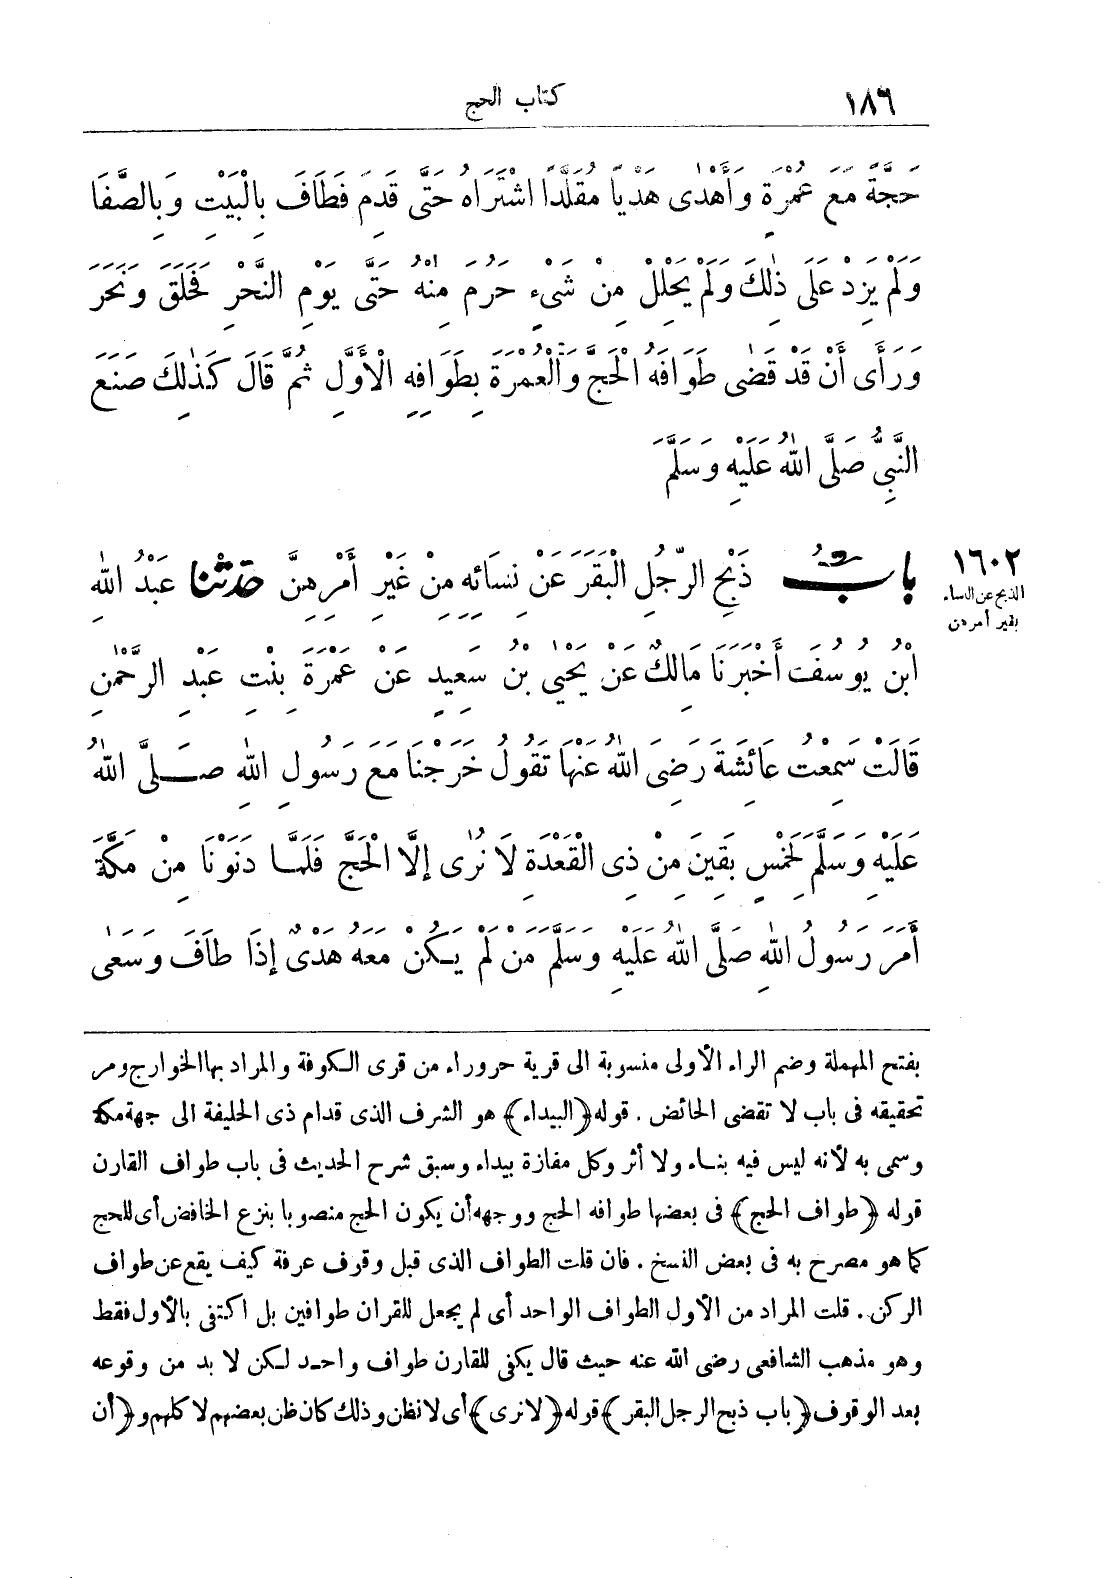 ١٨٦ كتاب الحج
حَجَّةً مَعَ عُمْرَةٍ وَأَهْدَى هَدْيًا مُقَلَّدًا اشْتَرَاهُ حَتَّى قَدِمَ فَطَافَ بِالْبَيْتِ وَبِالصَّفَا
وَلَمْ يَزِدْ عَلَى ذٰلِكَ وَلَمْ يَحْلِلْ مِنْ شَىْءٍ حَرُمَ مِنْهُ حَتَّى يَوْمِ النَّحْرِ فَحَلَقَ وَنَحَرَ
وَرَأَى أَنْ قَدْ قَضٰى طَوَافَهُ الْحَجَّ وَالْعُمْرَةَ بِطَوَافِهِ الْأَوَّلِ ثُمَّ قَالَ كَذٰلِكَ صَنَعَ
النَّبِىُّ صَلَّى اللهُ عَلَيْهِ وَسَلَّمَ
بابُ ذَبْحِ الرَّجُلِ الْبَقَرَ عَنْ نِسَائِهِ مِنْ غَيْرِ أَمْرِهِنَّ حَدَّثَنَا عَبْدُ اللهِ
١٦٠٢
الذبح عن النساء
بغير أمرهن
ابْنُ يُوسُفَ أَخْبَرَنَا مَالِكٌ عَنْ يَحْيَى بْنِ سَعِيدٍ عَنْ عَمْرَةَ بِنْتِ عَبْدِ الرَّحْمٰنِ
قَالَتْ سَمِعْتُ عَائِشَةَ رَضِىَ اللهُ عَنْهَا تَقُولُ خَرَجْنَا مَعَ رَسُولِ اللهِ صَلَّى اللهُ
عَلَيْهِ وَسَلَّمَ لِخَمْسٍ بَقِينَ مِنْ ذِى الْقَعْدَةِ لَا نُرٰى إِلَّا الْحَجَّ فَلَمَّا دَنَوْنَا مِنْ مَكَّةَ
أَمَرَ رَسُولُ اللهِ صَلَّى اللهُ عَلَيْهِ وَسَلَّمَ مَنْ لَمْ يَكُنْ مَعَهُ هَدْىٌ إِذَا طَافَ وَسَعٰى
بفتح المهملة وضم الراء الأولى منسوبة الى قرية حروراء من قرى الكوفة والمراد بها الخوارج ومر
تحقيقه فى باب لا تقضى الحائض . قوله ﴿البيداء﴾ هو الشرف الذى قدام ذى الحليفة الى جهة مكة
وسمى به لأنه ليس فيه بناء ولا أثر وكل مفازة بيداء وسبق شرح الحديث فى باب طواف القارن
قوله ﴿طواف الحج﴾ فى بعضها طوافه الحج ووجهه أن يكون الحج منصوبا بنزع الخافض أى للحج
كما هو مصرح به فى بعض النسخ . فان قلت الطواف الذى قبل وقوف عرفة كيف يقع عن طواف
الركن . قلت المراد من الأول الطواف الواحد أى لم يجعل للقران طوافين بل اكتفى بالأول فقط
وهو مذهب الشافعى رضى الله عنه حيث قال يكفى للقارن طواف واحد لكن لا بد من وقوعه
بعد الوقوف ﴿باب ذبح الرجل البقر﴾ قوله ﴿لا نرى﴾ أى لا نظن وذلك كان ظن بعضهم لا كلهم و﴿أن